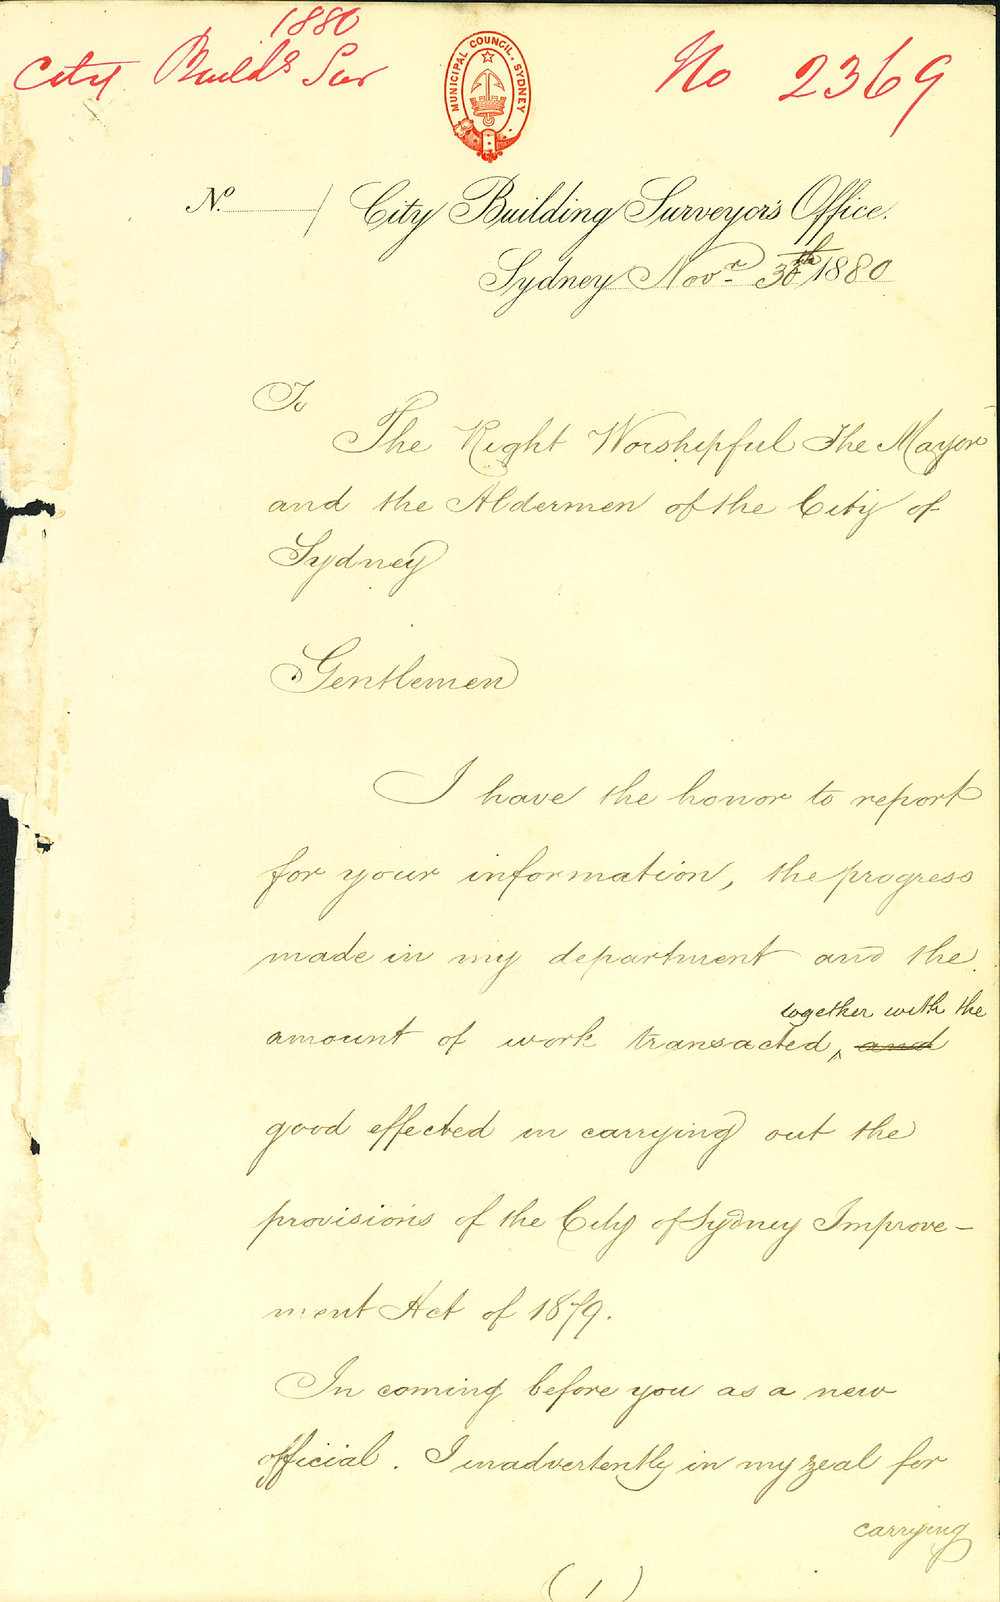 1880
City Build.s Sur
No 2369
MUNICIPAL COUNCIL, SYDNEY
No. / City Building Surveyor's Office.
Sydney Novr. 30th 1880
To
The Right Worshipful The Mayor
and the Aldermen of the City of
Sydney
Gentlemen
I have the honor to report
for your information, the progress
made in my department and the
together with the
amount of work transacted, ^ and
good effected in carrying out the
provisions of the City of Sydney Improve-
ment Act of 1879.
In coming before you as a new
official. I inadvertently in my zeal for
carrying
(1)